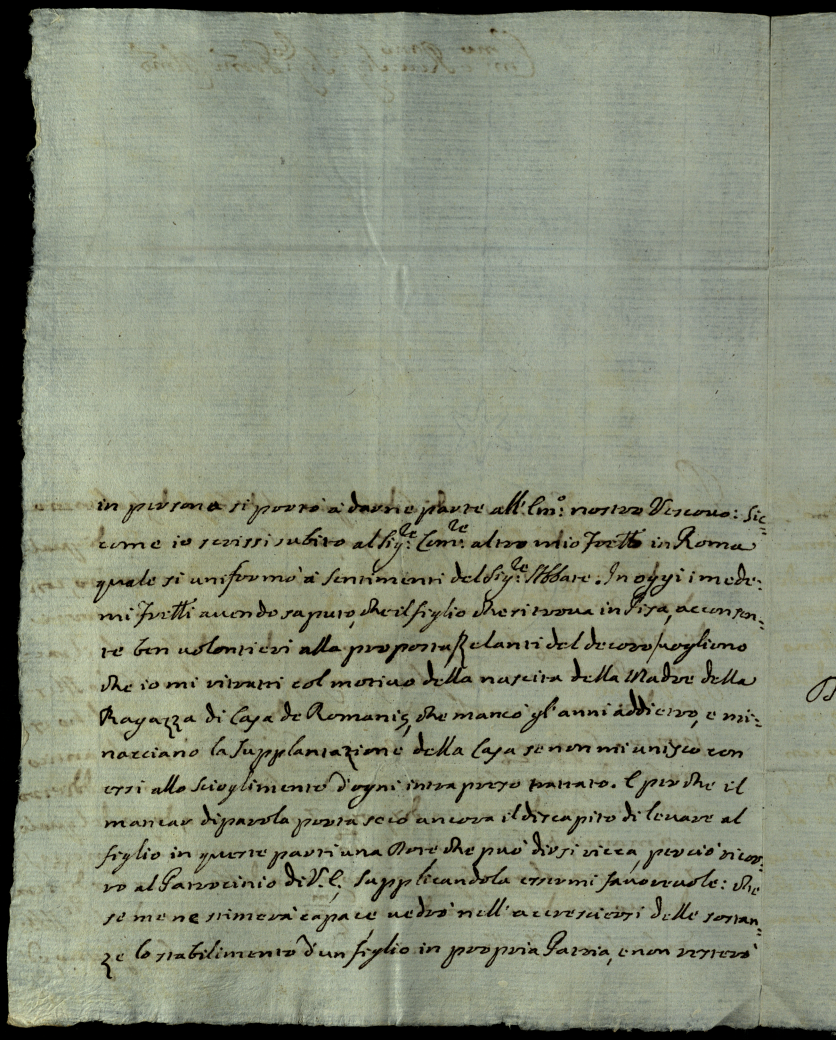 in persona si portò à darne parte all'Em:º nostro Vescovo: Sic=
come io scrissi subito al Sig:re Com:re altro mio Frello in Roma
quale si uniformò à sentimenti del Sig:re Abbate. In oggi i mede=
mi Frelli avendo saputo, che il figlio che si trova in Pisa, acconsen=
te ben volontieri alla proposta/zelanti del decoro/vogliono
che io mi ritratti col motivo della nascita della Madre della
Ragazza di Casa de Romanis, che mancò gl'anni addietro, e mi=
nacciano la supplantazione della Casa se non mi unisco con
essi allo scioglimento d'ogni intrapreso trattato. E perche il
mancar di parola porta seco ancora il discapito di levare al
figlio in queste parti una Dote che può dirsi ricca, perciò ricor=
ro al Patrocinio di V.E. supplicandola essermi favorevole: che
se me ne stimerà capace vedrò nell'accrescersi delle sostan=
ze lo stabilimento d'un figlio in propria Patria, e non resterò